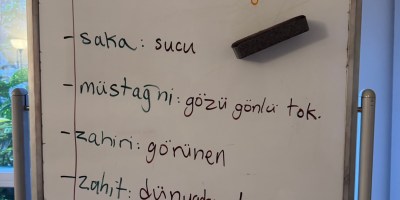 - saka: sucu
- müstağni: gözü gönlü tok.
- zahiri: görünen
- zahit: